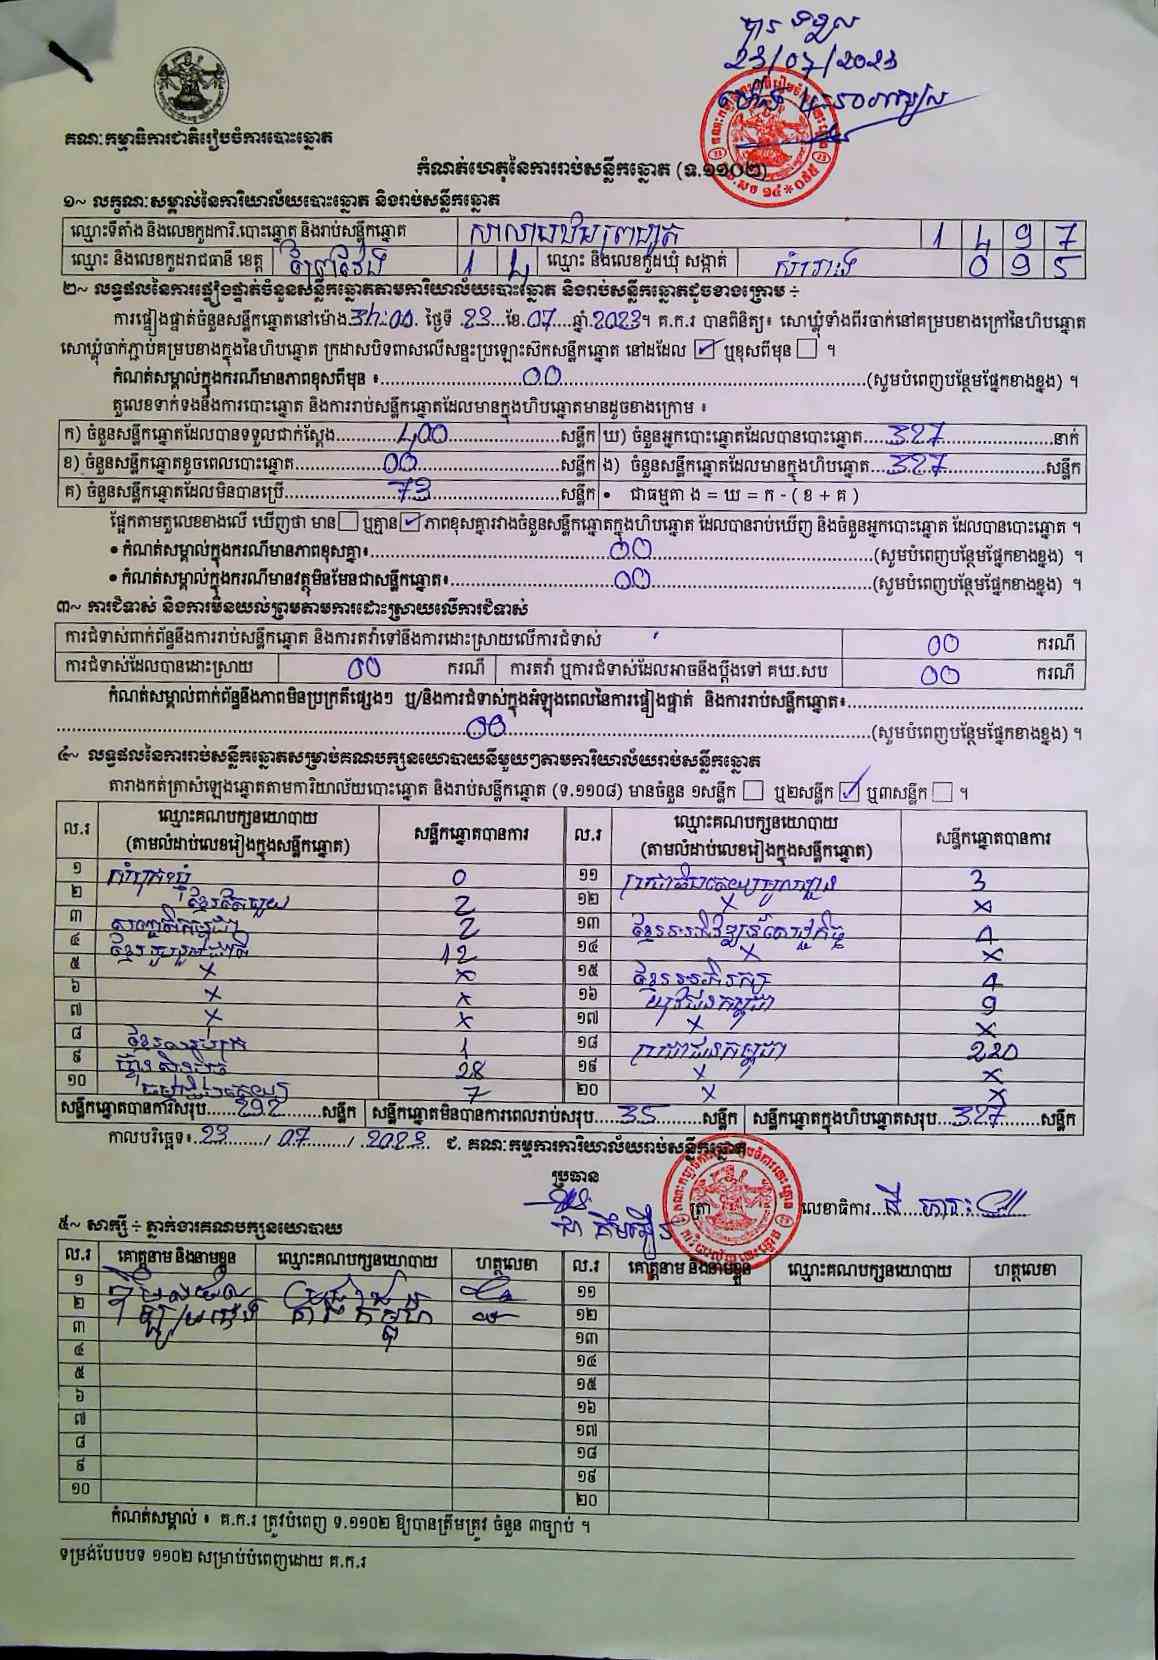 23/07/2023
គណៈកម្មាធិការជាតិរៀបចំការបោះឆ្នោត
កំណត់ហេតុនៃការរាប់សន្លឹកឆ្នោត (ទ.១១០២)
១~ លក្ខណៈសម្គាល់នៃការិយាល័យបោះឆ្នោត និងរាប់សន្លឹកឆ្នោត
ឈ្មោះទីតាំង និងលេខកូដការិ.បោះឆ្នោត និងរាប់សន្លឹកឆ្នោត 1 4 9 7
ឈ្មោះ និងលេខកូដរាជធានី ខេត្ត ព្រៃវែង 1 4 ឈ្មោះ និងលេខកូដឃុំ សង្កាត់ សំរោង 0 9 5
២~ លទ្ធផលនៃការផ្ទៀងផ្ទាត់ចំនួនសន្លឹកឆ្នោតតាមការិយាល័យបោះឆ្នោត និងរាប់សន្លឹកឆ្នោតដូចខាងក្រោម ÷
ការផ្ទៀងផ្ទាត់ចំនួនសន្លឹកឆ្នោតនៅម៉ោង 3h:00 ថ្ងៃទី 23 ខែ 07 ឆ្នាំ 2023។ គ.ក.រ បានពិនិត្យ៖ សោឃ្លុំទាំងពីរចាក់នៅគម្របខាងក្រៅនៃហិបឆ្នោត
សោឃ្លុំចាក់ភ្ជាប់គម្របខាងក្នុងនៃហិបឆ្នោត ក្រដាសបិទពាសលើសន្ទះប្រឡោះស៊កសន្លឹកឆ្នោត នៅដដែល ☑ ឬខុសពីមុន ☐ ។
កំណត់សម្គាល់ក្នុងករណីមានភាពខុសពីមុន ៖ 00 (សូមបំពេញបន្ថែមផ្នែកខាងខ្នង) ។
តួលេខទាក់ទងនឹងការបោះឆ្នោត និងការរាប់សន្លឹកឆ្នោតដែលមានក្នុងហិបឆ្នោតមានដូចខាងក្រោម ៖
ក) ចំនួនសន្លឹកឆ្នោតដែលបានទទួលជាក់ស្តែង 400 សន្លឹក ឃ) ចំនួនអ្នកបោះឆ្នោតដែលបានបោះឆ្នោត 327 នាក់
ខ) ចំនួនសន្លឹកឆ្នោតខូចពេលបោះឆ្នោត 00 សន្លឹក ង) ចំនួនសន្លឹកឆ្នោតដែលមានក្នុងហិបឆ្នោត 327 សន្លឹក
គ) ចំនួនសន្លឹកឆ្នោតដែលមិនបានប្រើ 73 សន្លឹក • ជាធម្មតា ង = ឃ = ក - ( ខ + គ )
ផ្អែកតាមតួលេខខាងលើ ឃើញថា មាន ☐ ឬគ្មាន ☑ ភាពខុសគ្នារវាងចំនួនសន្លឹកឆ្នោតក្នុងហិបឆ្នោត ដែលបានរាប់ឃើញ និងចំនួនអ្នកបោះឆ្នោត ដែលបានបោះឆ្នោត ។
• កំណត់សម្គាល់ក្នុងករណីមានភាពខុសគ្នា៖ 00 (សូមបំពេញបន្ថែមផ្នែកខាងខ្នង) ។
• កំណត់សម្គាល់ក្នុងករណីមានវត្ថុមិនមែនជាសន្លឹកឆ្នោត៖ 00 (សូមបំពេញបន្ថែមផ្នែកខាងខ្នង) ។
៣~ ការជំទាស់ និងការមិនយល់ព្រមតាមការដោះស្រាយលើការជំទាស់
ការជំទាស់ពាក់ព័ន្ធនឹងការរាប់សន្លឹកឆ្នោត និងការតវ៉ាទៅនឹងការដោះស្រាយលើការជំទាស់ 00 ករណី
ការជំទាស់ដែលបានដោះស្រាយ 00 ករណី ការតវ៉ា ឬការជំទាស់ដែលអាចនឹងប្តឹងទៅ គឃ.សប 00 ករណី
កំណត់សម្គាល់ពាក់ព័ន្ធនឹងភាពមិនប្រក្រតីផ្សេងៗ ឬ/និងការជំទាស់ក្នុងអំឡុងពេលនៃការផ្ទៀងផ្ទាត់ និងការរាប់សន្លឹកឆ្នោត៖
00 (សូមបំពេញបន្ថែមផ្នែកខាងខ្នង) ។
៤~ លទ្ធផលនៃការរាប់សន្លឹកឆ្នោតសម្រាប់គណបក្សនយោបាយនីមួយៗតាមការិយាល័យរាប់សន្លឹកឆ្នោត
តារាងកត់ត្រាសំឡេងឆ្នោតតាមការិយាល័យបោះឆ្នោត និងរាប់សន្លឹកឆ្នោត (ទ.១១០៨) មានចំនួន ១សន្លឹក ☐ ឬ២សន្លឹក ☑ ឬ៣សន្លឹក ☐ ។
ល.រ ឈ្មោះគណបក្សនយោបាយ (តាមលំដាប់លេខរៀងក្នុងសន្លឹកឆ្នោត) សន្លឹកឆ្នោតបានការ ល.រ ឈ្មោះគណបក្សនយោបាយ (តាមលំដាប់លេខរៀងក្នុងសន្លឹកឆ្នោត) សន្លឹកឆ្នោតបានការ
១ 0 ១១ 3
២ ខ្មែរតែមួយ 2 ១២ x x
៣ 2 ១៣ ខ្មែរអភិវឌ្ឍន៍សេដ្ឋកិច្ច 4
៤ ខ្មែររួបរួមជាតិ 12 ១៤ x x
៥ x x ១៥ ខ្មែរអភិរក្ស 4
៦ x x ១៦ យុវជនកម្ពុជា 9
៧ x x ១៧ x x
៨ 1 ១៨ ប្រជាជនកម្ពុជា 220
៩ 28 ១៩ x x
១០ 7 ២០ x x
សន្លឹកឆ្នោតបានការសរុប 292 សន្លឹក សន្លឹកឆ្នោតមិនបានការពេលរាប់សរុប 35 សន្លឹក សន្លឹកឆ្នោតក្នុងហិបឆ្នោតសរុប 327 សន្លឹក
កាលបរិច្ឆេទ៖ 23 / 07 / 2023 ជ. គណៈកម្មការការិយាល័យរាប់សន្លឹកឆ្នោត
ប្រធាន
ត្រា លេខាធិការ
៥~ សាក្សី ÷ ភ្នាក់ងារគណបក្សនយោបាយ
ល.រ គោត្តនាម និងនាមខ្លួន ឈ្មោះគណបក្សនយោបាយ ហត្ថលេខា ល.រ គោត្តនាម និងនាមខ្លួន ឈ្មោះគណបក្សនយោបាយ ហត្ថលេខា
១ ១១
២ ១២
៣ ១៣
៤ ១៤
៥ ១៥
៦ ១៦
៧ ១៧
៨ ១៨
៩ ១៩
១០ ២០
កំណត់សម្គាល់ ៖ គ.ក.រ ត្រូវបំពេញ ទ.១១០២ ឱ្យបានត្រឹមត្រូវ ចំនួន ៣ច្បាប់ ។
ទម្រង់បែបបទ ១១០២ សម្រាប់បំពេញដោយ គ.ក.រ